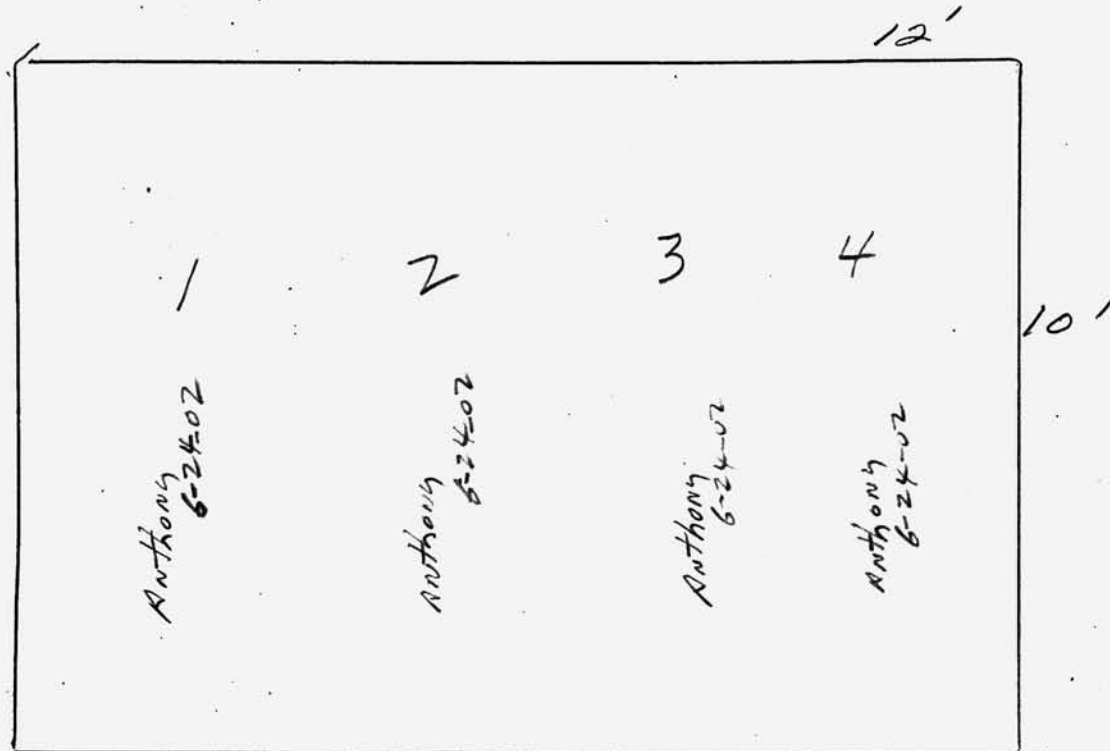 12'
1
2
3
4
10'
Anthony
6-24-02
Anthony
6-24-02
Anthony
6-24-02
Anthony
6-24-02